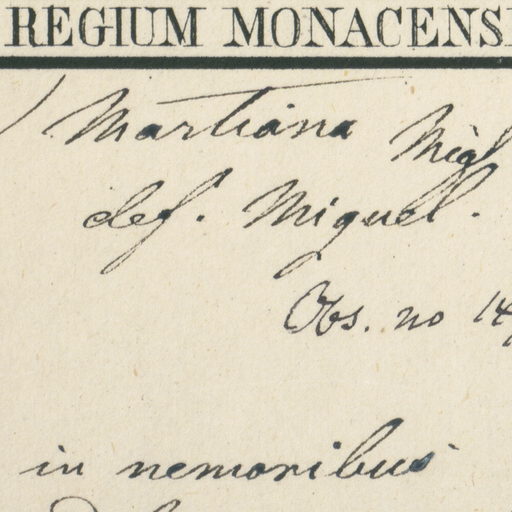 REGIUM MONACENS
Martiana Miql
def. Miquel.
Obs. no 14
in nemoribus